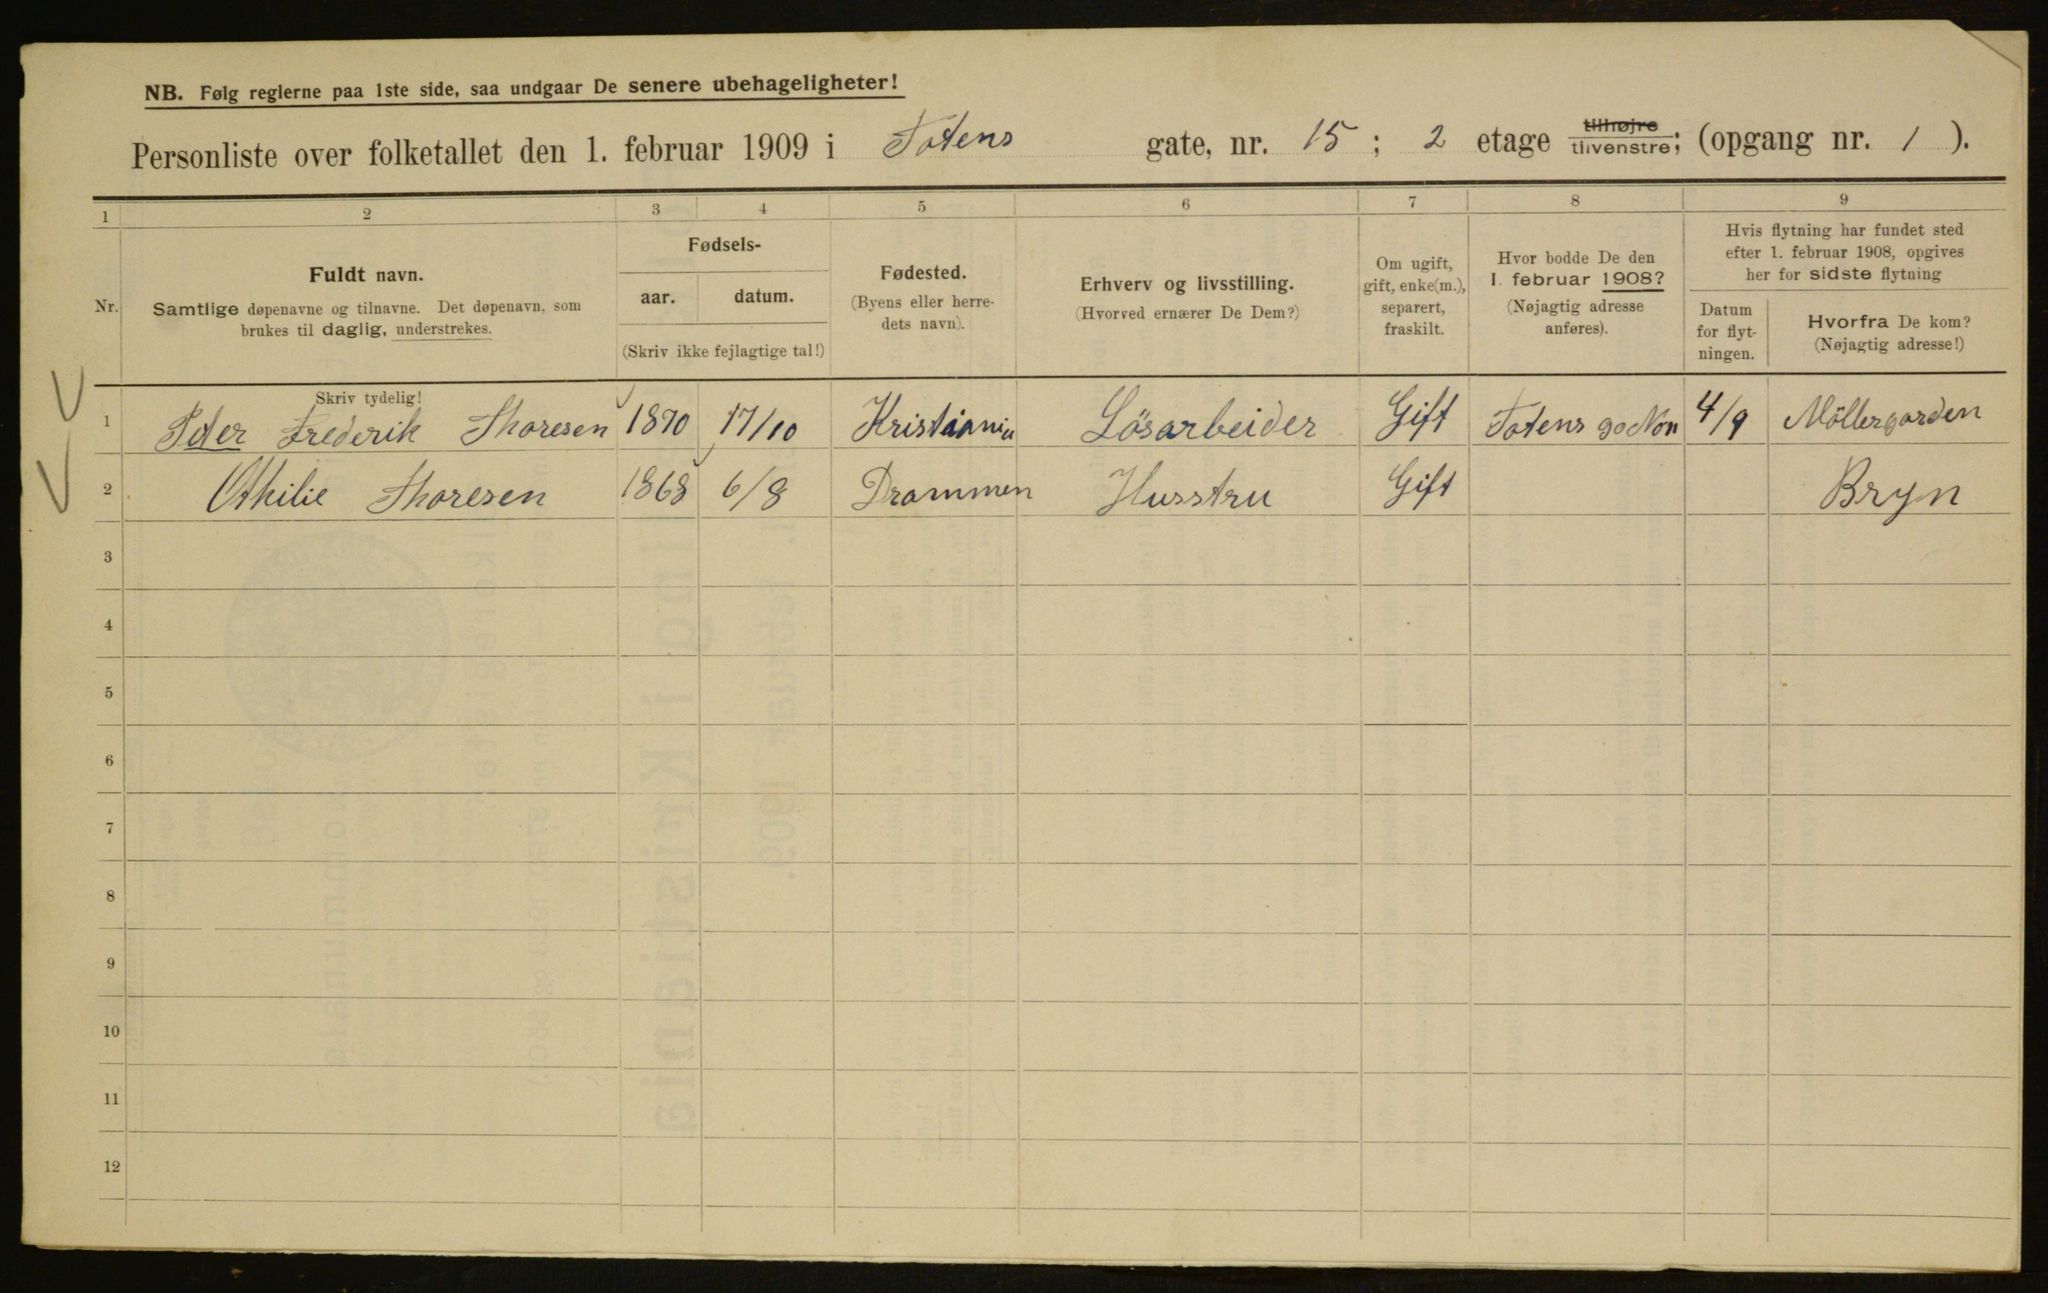 NB. Følg reglerne paa 1ste side, saa undgaar De senere ubehageligheter!
Personliste over folketallet den 1. februar 1909 i Totens gate, nr. 15 ; 2 etage tilhøjre tilvenstre; (opgang nr. 1 ).
1 2 3 4 5 6 7 8 9
Nr.
Fuldt navn.
Samtlige døpenavne og tilnavne. Det døpenavn, som
brukes til daglig, understrekes.
Fødsels-
aar. datum.
(Skriv ikke fejlagtige tal!)
Fødested.
(Byens eller herre-
dets navn).
Erhverv og livsstilling.
(Hvorved ernærer De Dem?)
Om ugift,
gift, enke(m.),
separert,
fraskilt.
Hvor bodde De den
1. februar 1908?
(Nøjagtig adresse
anføres).
Hvis flytning har fundet sted
efter 1. februar 1908, opgives
her for sidste flytning
Datum
for flyt-
ningen.
Hvorfra De kom?
(Nøjagtig adresse!)
Skriv tydelig!
1 Peter Frederik Thoresen 1870 17/10 Kristiania Lösarbeider Gift Totens 4/9 Möllergarden
2 Othilie Thoresen 1868 6/8 Drammen Husstru Gift Bryn
3
4
5
6
7
8
9
10
11
12